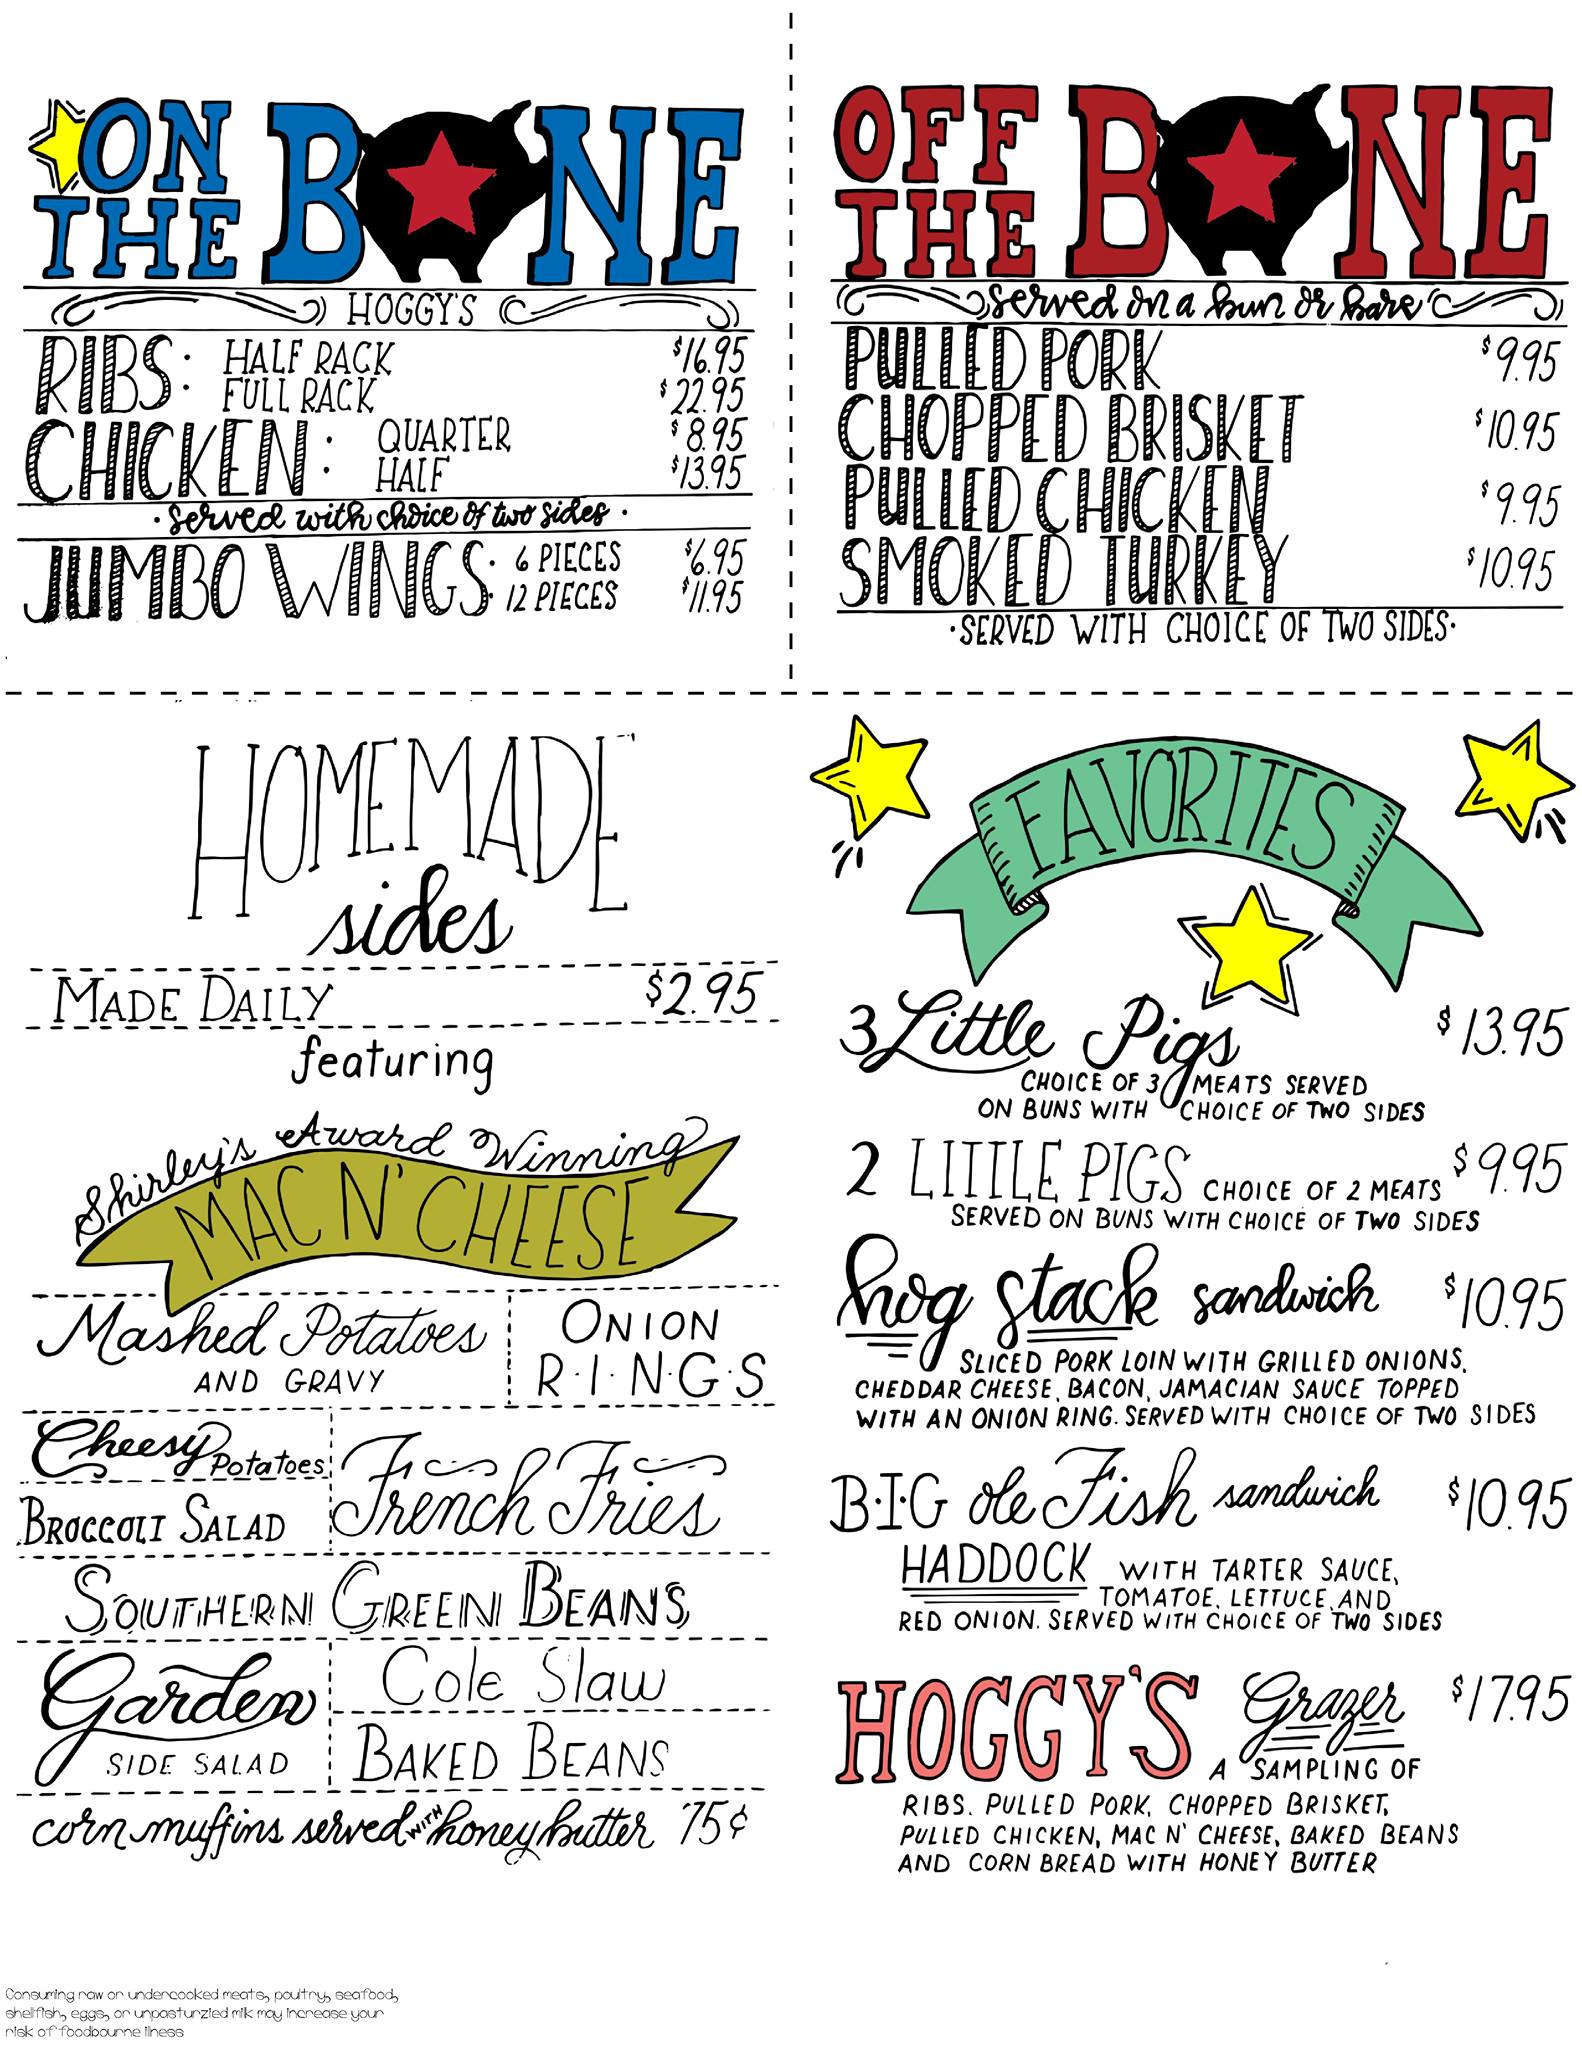 ON
THE BONE
HOGGY'S
RIBS: HALF RACK $16.95
FULL RACK $22.95
CHICKEN: QUARTER $8.95
HALF $13.95
·served with choice of two sides·
JUMBO WINGS: 6 PIECES $6.95
12 PIECES $11.95
OFF
THE BONE
served on a bun or bare
PULLED PORK $9.95
CHOPPED BRISKET $10.95
PULLED CHICKEN $9.95
SMOKED TURKEY $10.95
·SERVED WITH CHOICE OF TWO SIDES·
HOMEMADE
sides
MADE DAILY $2.95
featuring
Shirley's Award Winning
MAC N' CHEESE
Mashed Potatoes
AND GRAVY
ONION
R·I·N·G·S
Cheesy Potatoes
BROCCOLI SALAD
French Fries
SOUTHERN GREEN BEANS
Garden
SIDE SALAD
Cole Slaw
BAKED BEANS
corn muffins served WITH honey butter 75¢
FAVORITES
3 Little Pigs $13.95
CHOICE OF 3 MEATS SERVED
ON BUNS WITH CHOICE OF TWO SIDES
2 LITTLE PIGS CHOICE OF 2 MEATS $9.95
SERVED ON BUNS WITH CHOICE OF TWO SIDES
hog stack sandwich $10.95
SLICED PORK LOIN WITH GRILLED ONIONS,
CHEDDAR CHEESE, BACON, JAMACIAN SAUCE TOPPED
WITH AN ONION RING. SERVED WITH CHOICE OF TWO SIDES
B·I·G ole Fish sandwich $10.95
HADDOCK WITH TARTER SAUCE,
TOMATOE, LETTUCE, AND
RED ONION. SERVED WITH CHOICE OF TWO SIDES
HOGGY'S Grazer $17.95
A SAMPLING OF
RIBS, PULLED PORK, CHOPPED BRISKET,
PULLED CHICKEN, MAC N' CHEESE, BAKED BEANS
AND CORN BREAD WITH HONEY BUTTER
Consuming raw or undercooked meats, poultry, seafood,
shellfish, eggs, or unpasturzied milk may increase your
risk of foodbourne illness